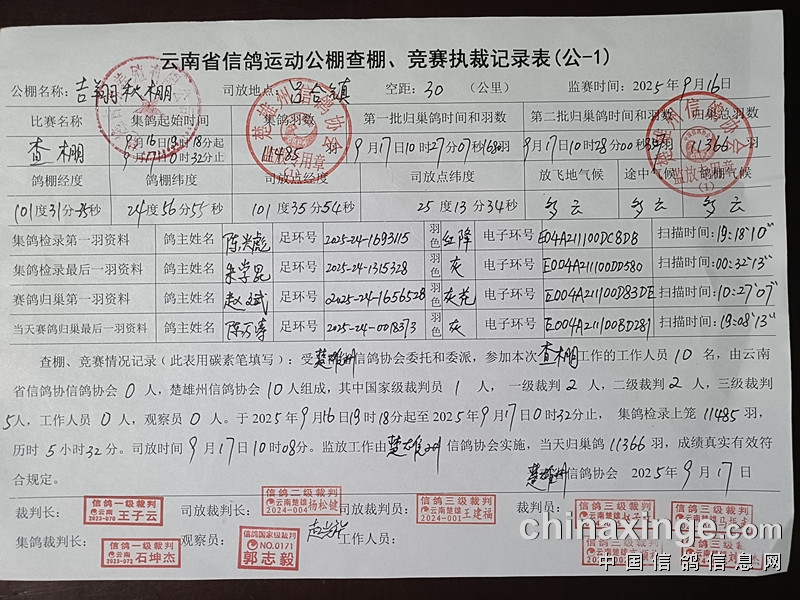 云南省信鸽运动公棚查棚、竞赛执裁记录表(公-1)
公棚名称：吉翔秋棚 司放地点：吕合镇 空距：30（公里） 监赛时间：2025年9月16日
比赛名称 集鸽起始时间 集鸽羽数 第一批归巢鸽时间和羽数 第二批归巢鸽时间和羽数 归巢总羽数
查棚 9月16日19时18分起 9月17日0时32分止 11485羽 9月17日10时27分07秒 9月17日10时28分00秒 11366羽
鸽棚经度 鸽棚纬度 司放点经度 司放点纬度 放飞地气候 途中气候 鸽棚气候
101度31分 秒 24度56分55秒 101度35分54秒 25度13分34秒 多云 多云 多云
集鸽检录第一羽资料 鸽主姓名 陈兴彪 足环号 2025-24-1693115 羽色 红降 电子环号 E04A211100DC8DB 扫描时间：19:18'10"
集鸽检录最后一羽资料 鸽主姓名 朱学昆 足环号 2025-24-1315328 羽色 灰 电子环号 E004A211100DD580 扫描时间：00:32'13"
赛鸽归巢第一羽资料 鸽主姓名 赵斌 足环号 2025-24-1656528 羽色 灰花 电子环号 E004A211100D83DE 扫描时间：10:27'07"
当天赛鸽归巢最后一羽资料 鸽主姓名 足环号 2025-24-0018373 羽色 灰 电子环号 E004A211100BD289 扫描时间：19:08'13"
查棚、竞赛情况记录（此表用碳素笔填写）：受楚雄州信鸽协会委托和委派，参加本次查棚工作的工作人员10名，由云南
省信鸽协信鸽协会0人，楚雄州信鸽协会10人组成，其中国家级裁判员1人，一级裁判2人，二级裁判2人，三级裁判
5人，工作人员0人，观察员0人。于2025年9月16日19时18分起至2025年9月17日0时32分止，集鸽检录上笼11485羽，
历时5小时32分。司放时间9月17日10时08分。监放工作由楚雄州信鸽协会实施，当天归巢鸽11366羽，成绩真实有效符
合规定。
楚雄州信鸽协会 2025年9月17日
裁判长： 信鸽一级裁判 云南 2023-070 王子云 司放裁判长： 信鸽二级裁判 云南楚雄 2024-004 杨松健 司放裁判员： 信鸽三级裁判 云南楚雄 2024-001 王建福 裁判员： 信鸽三级裁判 云南楚雄 信鸽三级裁判 云南楚雄
集鸽裁判长： 信鸽一级裁判 云南 2023-072 石坤杰 观察员： 信鸽国家级裁判 NO.0171 郭志毅 工作人员：
chinaxinge.com
中国信鸽信息网